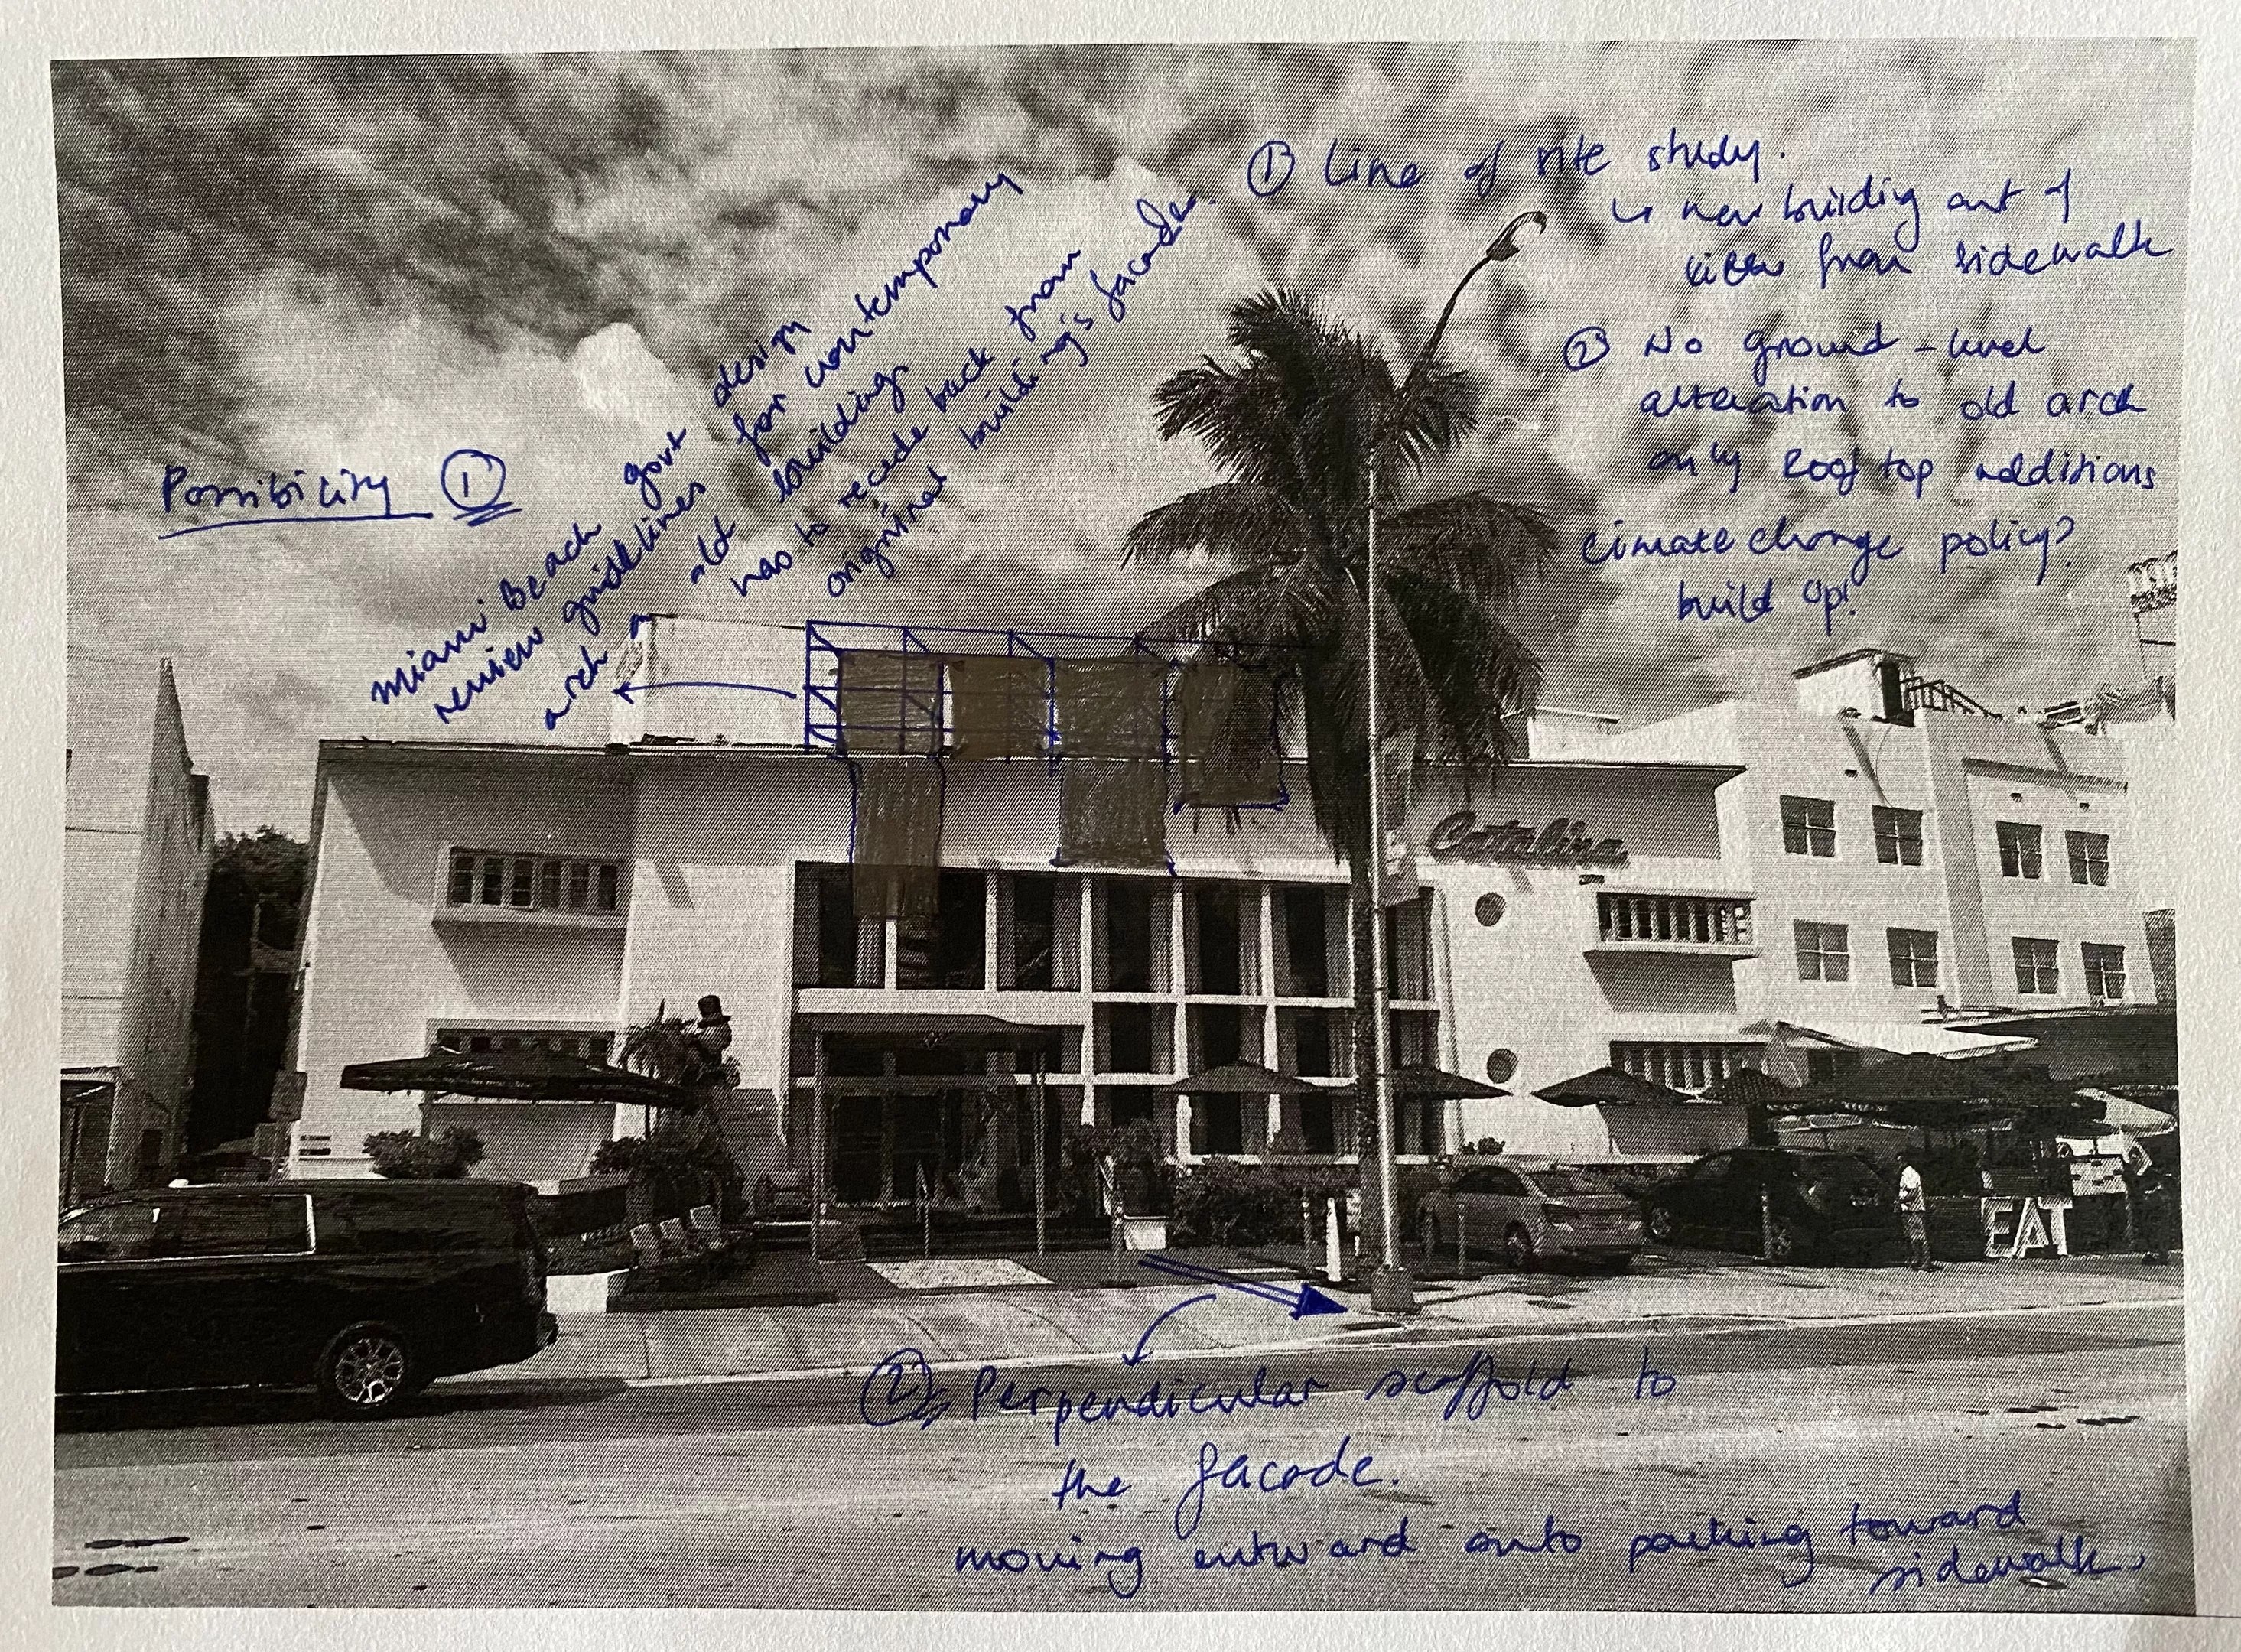 Possibility ①
Miami Beach govt design
review guidelines for contemporary
arch → old buildings
has to recede back from
original building's facade.
① Line of site study.
↳ new building out of
view from sidewalk
② No ground-level
alteration to old arch
only Roof top additions
Climate change policy?
build up!
Catalina
EAT
② Perpendicular scaffold to
the facade.
moving outward onto parking toward
sidewalk.